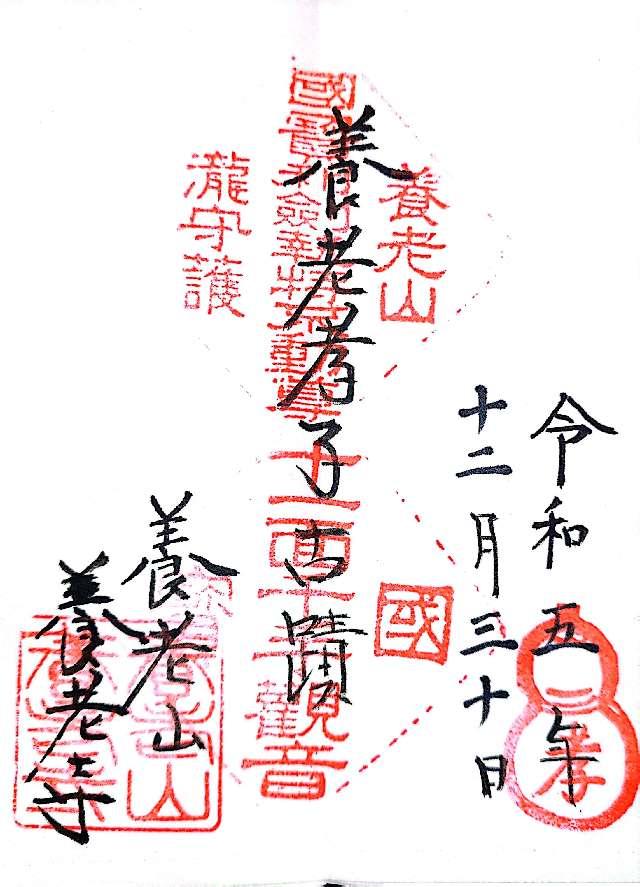 令和五年
十二月三十日
養老山
國
養老孝子古蹟
十一面千手観音
瀧守護
養老山
養老寺